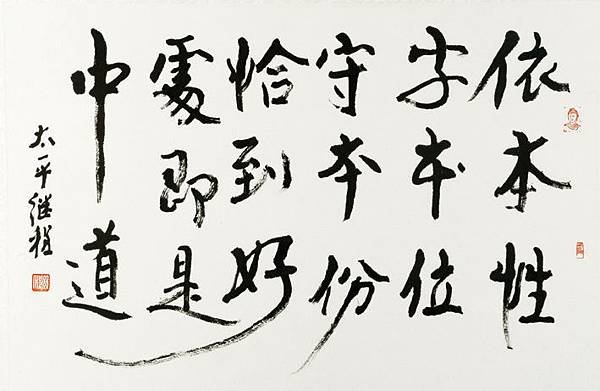 依本性
本位
守本份
恰到好
處即是
中道
太平继程